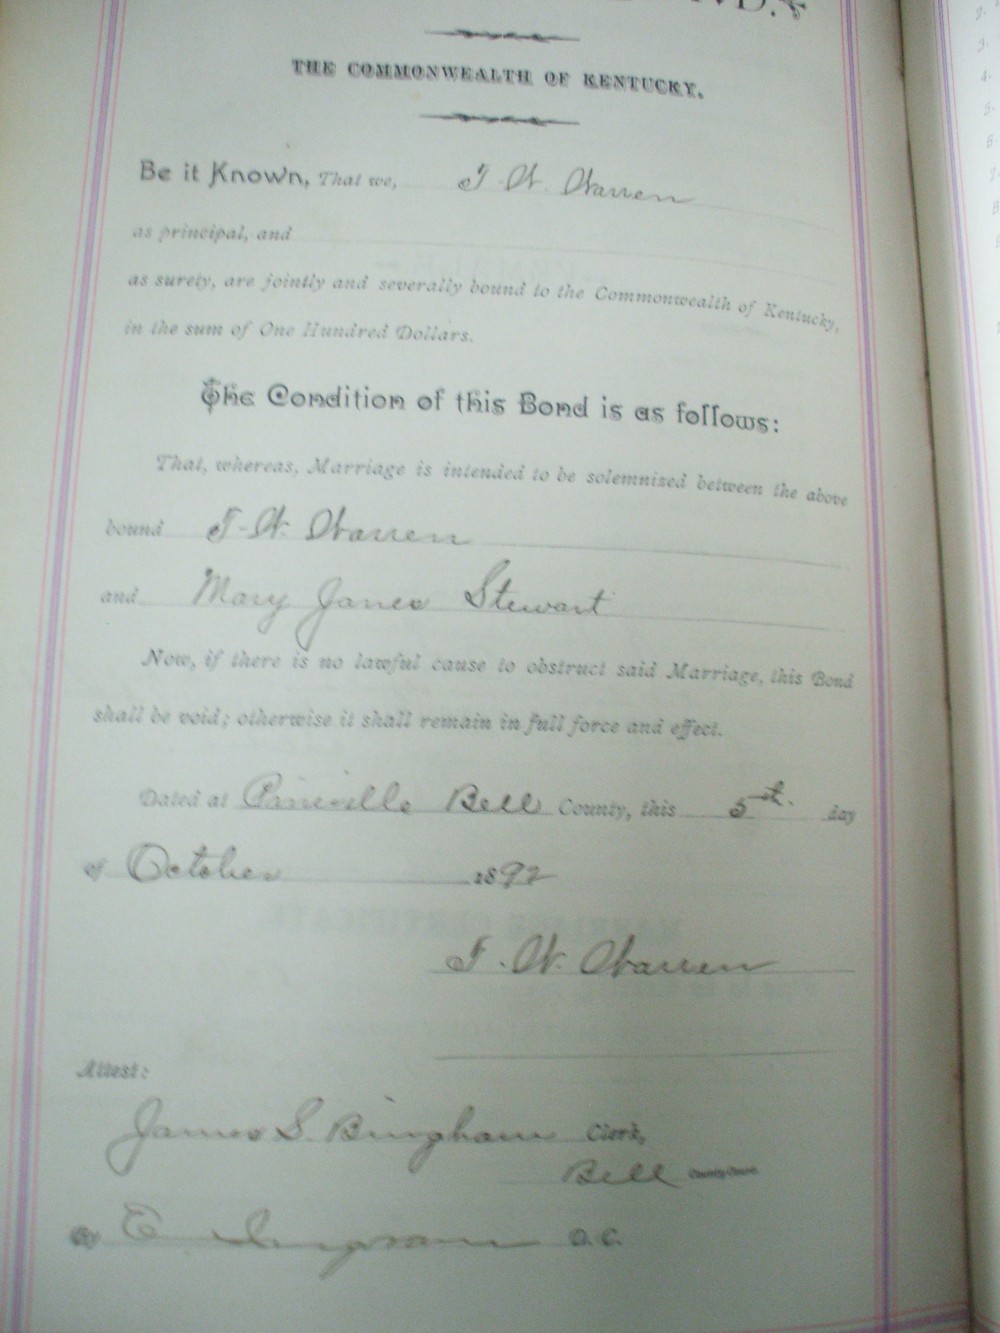 THE COMMONWEALTH OF KENTUCKY.
Be it Known, That we, J. W. Warren
as principal, and
as surety, are jointly and severally bound to the Commonwealth of Kentucky,
in the sum of One Hundred Dollars.
The Condition of this Bond is as follows:
That, whereas, Marriage is intended to be solemnized between the above
bound J. W. Warren
and Mary Janes Stewart
Now, if there is no lawful cause to obstruct said Marriage, this Bond
shall be void; otherwise it shall remain in full force and effect.
Dated at Pineville Bell County, this 5th. day
of October 1892
J. W. Warren
Attest:
James S. Bingham Clerk,
Bell County Court.
By E Ingram D.C.